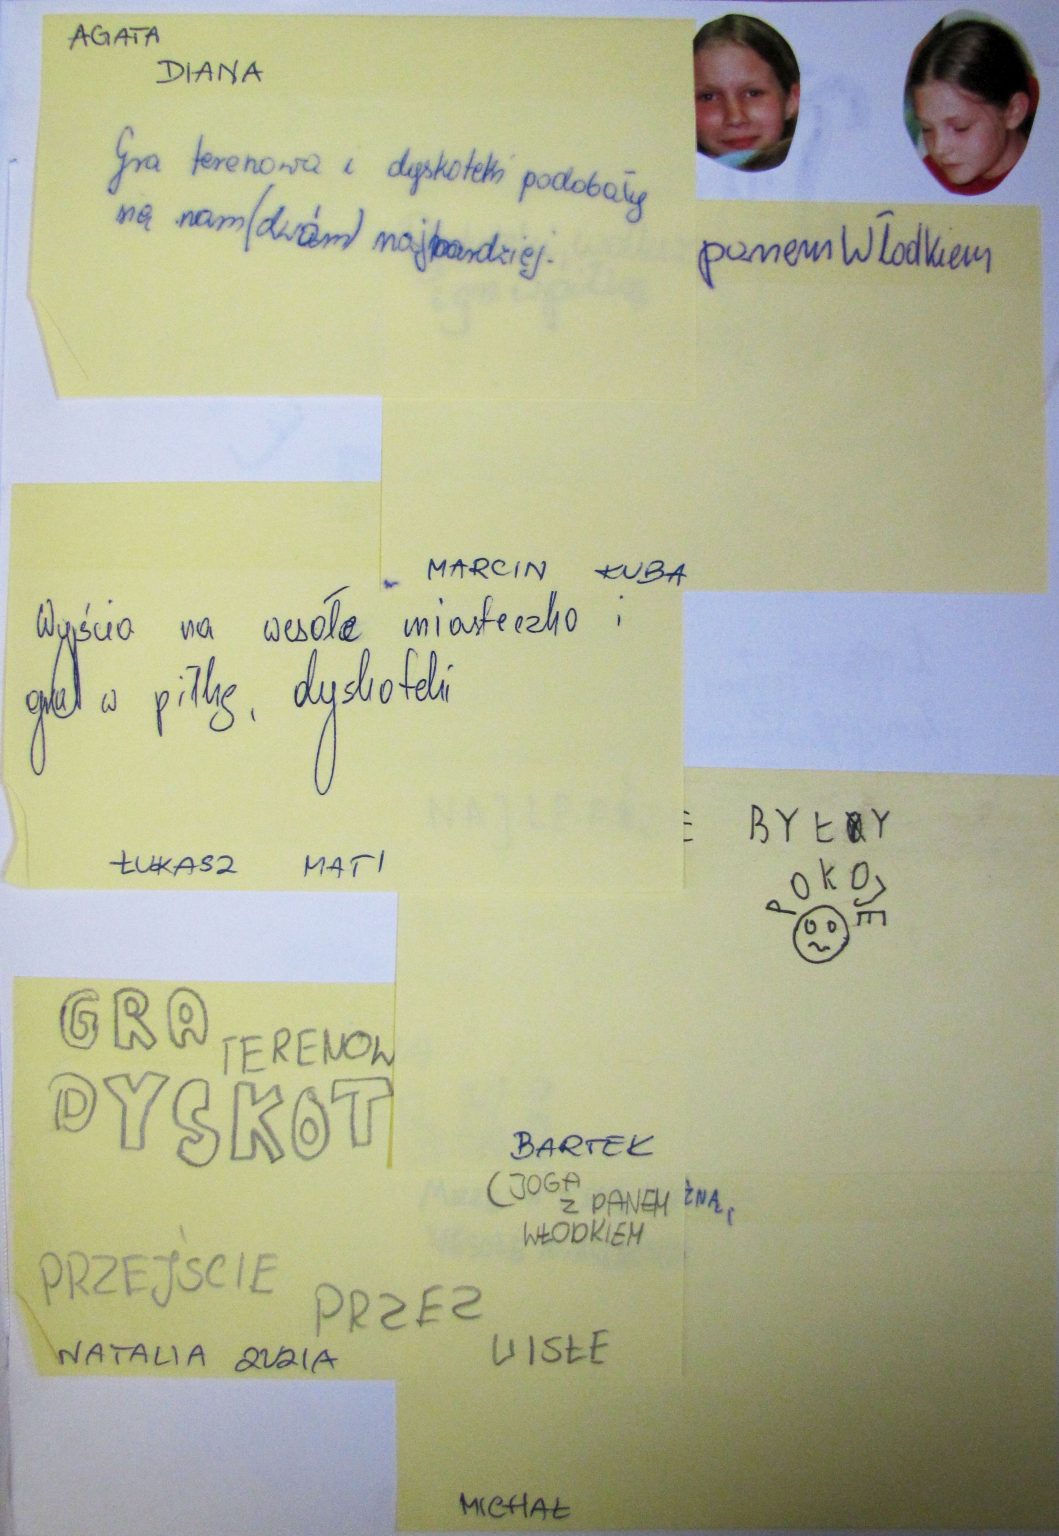 AGATA
DIANA
Gra terenowa i dyskoteki podobały
się nam (dwóm) najbardziej.
panem Włodkiem
MARCIN KUBA
Wyjścia na wesołe miasteczko i
gra w piłkę, dyskoteki
E BYŁY
POKOJE
ŁUKASZ MATI
GRA
TERENOW
DYSKOT
BARTEK
(JOGA
Z PANEM
WŁODKIEM
ŹNĄ,
PRZEJŚCIE
PRZEZ
WISŁE
NATALIA ZUZIA
MICHAŁ